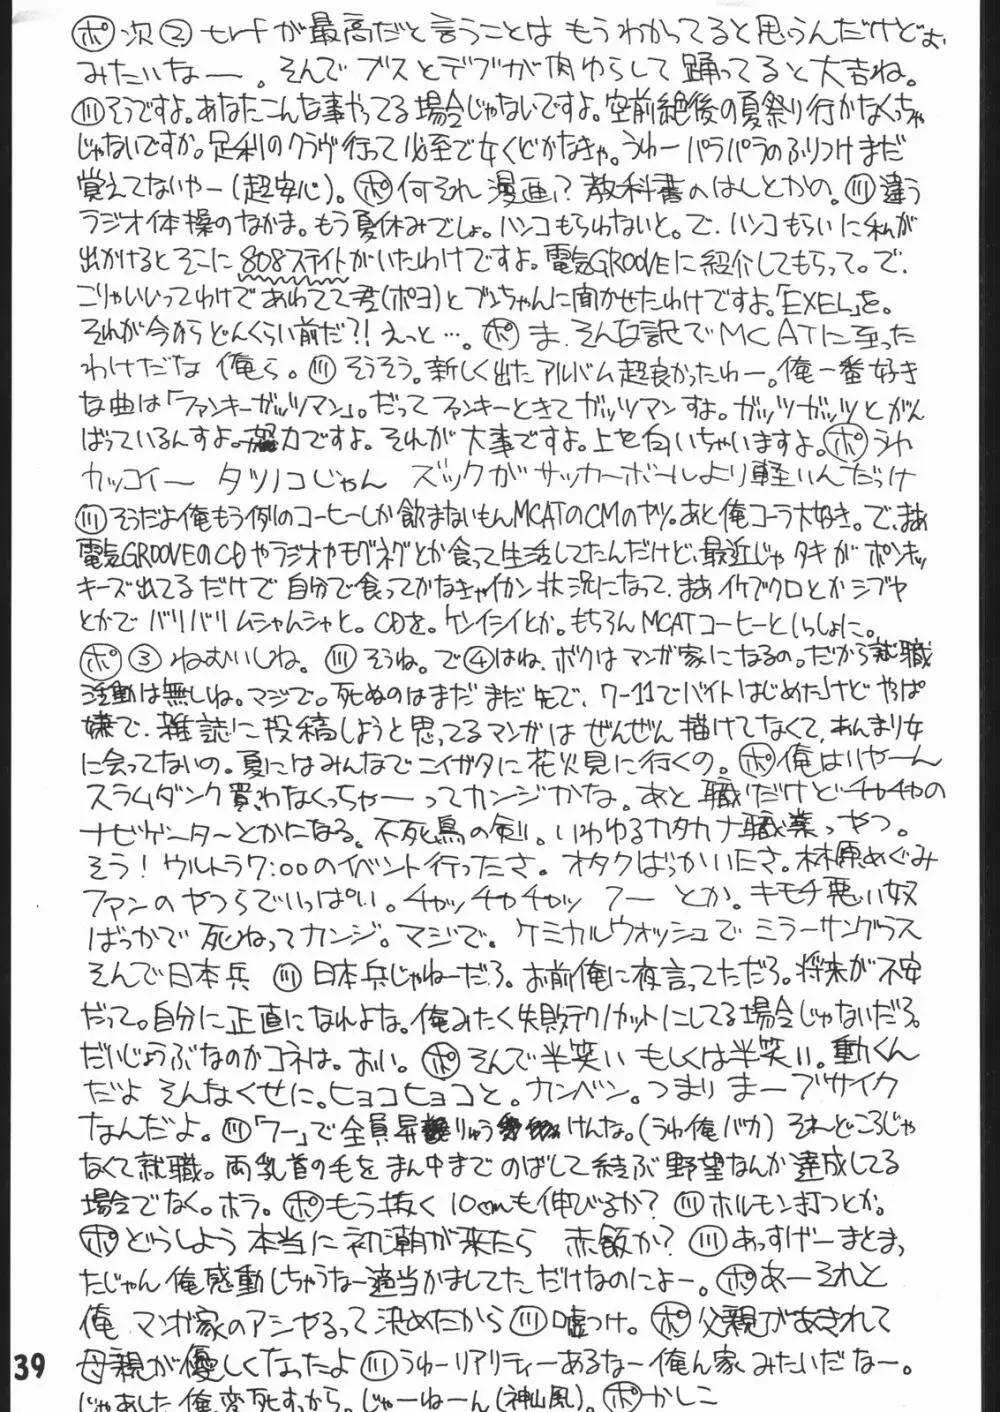 ポ 次② trfが最高だと言うことは もうわかってると思うんだけどぉ、
みたいなー。そんで ブスとデブが肉ゆらして 踊ってると大吉ね。
川 そうですよ。あなたこんな事やってる場合じゃないですよ。空前絶後の夏祭り行かなくちゃ
じゃないですか。足利のクラヴ行って必至で女くどかなきゃ。うわー パラパラのふりつけまだ
覚えてないやー(超安心)。ポ 何それ 漫画!? 教科書のはしとかの。川 違う
ラジオ体操のなかま。もう夏休みでしょ。ハンコもらわないと。で、ハンコもらいに私が
出かけるとそこに808ステイトがいたわけですよ。電気GROOVEに紹介してもらって。で、
こりゃいいってわけであわてて君(ポヨ)とブンちゃんに聞かせたわけですよ「EXEL」を。
それが今からどんくらい前だ?! えっと…。ポ ま、そんな訳でMCATに至った
わけだな 俺ら。川 そうそう。新しく出たアルバム超良かったわー。俺一番好き
な曲は「ファンキーガッツマン」。だってファンキーときてガッツマンすよ。ガッツガッツとがん
ばっているんすよ。努力ですよ。それが大事ですよ。上を向いちゃいますよ。ポ うわ
カッコイー タツノコじゃん ズックがサッカーボールより軽いんだっけ
川 そうだよ俺もう例のコーヒーしか飲まないもんMCATのCMのヤツ。あと俺コーラ大好き。で、まあ
電気GROOVEのCDやラジオやモグネグとか食って生活してたんだけど、最近じゃ タキが ポンキッ
キーズ出てるだけで 自分で食ってかなきゃイカン状況になって、まあイケブクロとかシブヤ
とかで バリバリムシャムシャと。CDを。ケンイシイとか。もちろんMCATコーヒーといっしょに。
ポ ③ ねむいしね。川 そうね。で④はね、ボクはマンガ家になるの。だから就職
活動は無しね。マジで。死ぬのはまだまだ先で、7-11でバイトはじめたけど やっぱ
嫌で、雑誌に投稿しようと思ってるマンガは ぜんぜん描けてなくて、あんまり女
に会ってないの。夏にはみんなでニイガタに花火見に行くの。ポ 俺はいやーん
スラムダンク買わなくっちゃーってカンジかな。あと 職だけどチャチャの
ナビゲーターとかになる。不死鳥の剣!。いわゆるカタカナ職業っやつ。
そう! ウルトラ7:00のイベント行ったさ。オタクばっかいたさ。林原めぐみ
ファンのやつらでいっぱい。チャッチャチャッ フー とか。キモチ悪い奴
ばっかで 死ねってカンジ。マジで。ケミカルウォッシュで ミラーサングラス
そんで日本兵 川 日本兵じゃねーだろ。お前俺に夜言ってただろ。将来が不安
だって。自分に正直になれよな。俺みたく失敗テクノカットにしてる場合じゃないだろ。
だいじょうぶなのかコネは。おい。ポ そんで半笑い もしくは半笑い。動くん
だよ そんなくせに。ヒョコヒョコと。カンベン。つまり まーブサイク
なんだよ。川「フー」で全員昇りゅうけんな。(うわ俺バカ) それどころじゃ
なくて就職。両乳首の毛をまん中まで のばして結ぶ野望なんか達成してる
場合でなく。ホラ。ポ もう抜く 10cmも伸びるか? 川 ホルモン打つとか。
ポ どうしよう 本当に初潮が来たら 赤飯か? 川 あっすげーまとまっ
たじゃん俺感動しちゃうなー適当かましてた だけなのによー。ポ あーそれと
俺 マンガ家のアシやるって決めたから 川 嘘つけ。ポ 父親があきれて
母親が優しくなったよ 川 うわーリアリティーあるなー俺ん家みたいだなー。
じゃあした俺、変死すっから。じゃーねーん(神山風)。ポ かしこ
39